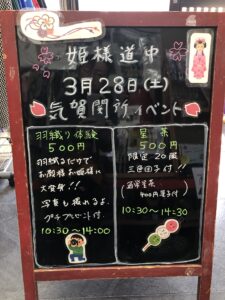 姫様道中
3月28日(土)
気賀関所イベント
羽織り体験
500円
羽織るだけで
お殿様お姫様に
大変身!!
写真も撮れるよ。
プチプレゼント付
10:30~14:00
呈茶
500円
限定20服
三色団子付!!
(通常呈茶
400円菓子付)
10:30~14:30